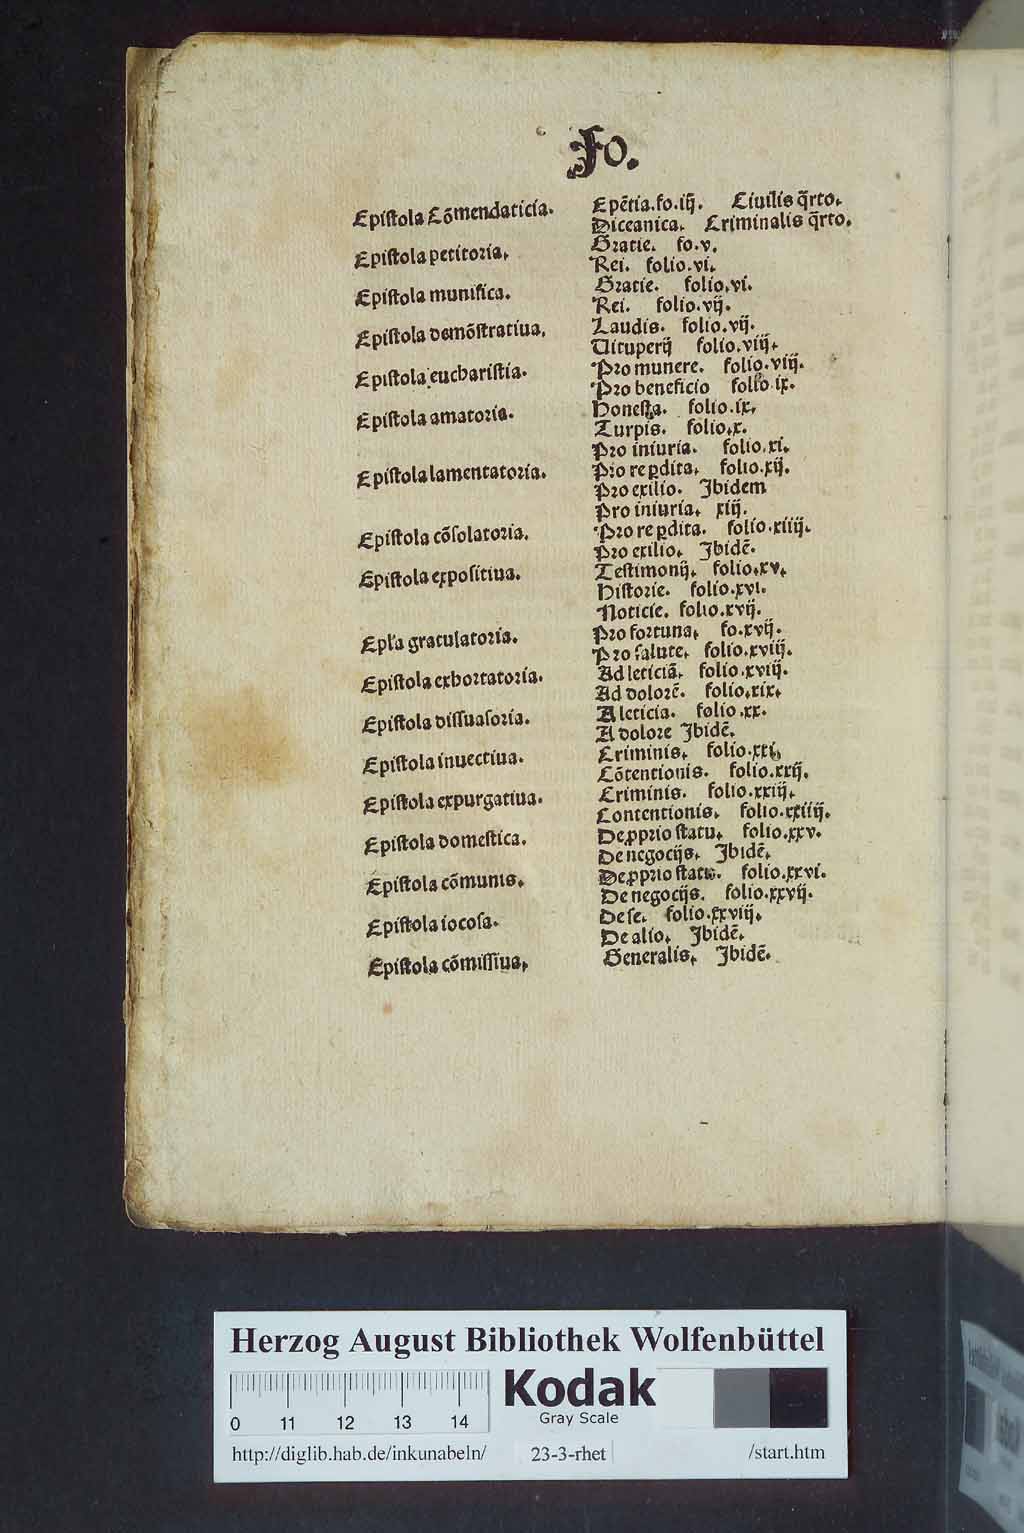 Fo.
Epistola Cōmendaticia.
Epistola petitoria.
Epistola munifica.
Epistola demōstratiua.
Epistola eucharistia.
Epistola amatoria.
Epistola lamentatoria.
Epistola cōsolatoria.
Epistola expositiua.
Epl'a gratulatoria.
Epistola exhortatoria.
Epistola dissuasoria.
Epistola inuectiua.
Epistola expurgatiua.
Epistola domestica.
Epistola cōmunis.
Epistola iocosa.
Epistola cōmissiua.
Epētia. fo.iij. Ciuilis q̄rto.
Diceanica. Criminalis q̄rto.
Gratie. fo.v.
Rei. folio.vi.
Gratie. folio.vi.
Rei. folio.vij.
Laudis. folio.vij.
Uituperij folio.viij.
Pro munere. folio.viij.
Pro beneficio folio ix.
Honesta. folio.ix.
Turpis. folio.x.
Pro iniuria. folio.xi.
Pro reꝑdita. folio.xij.
Pro exilio. Ibidem
Pro iniuria. xiij.
Pro reꝑdita. folio.xiiij.
Pro exilio. Ibidē.
Testimonij. folio.xv.
Historie. folio.xvi.
Noticie. folio.xvij.
Pro fortuna. fo.xvij.
Pro salute. folio.xviij.
Ad leticiā. folio.xviij.
Ad dolorē. folio.xix.
A leticia. folio.xx.
A dolore Ibidē.
Criminis. folio.xxi.
Cōtentionis. folio.xxij.
Criminis. folio.xxiij.
Contentionis. folio.xxiiij.
De ꝓprio statu. folio.xxv.
De negocijs. Ibidē.
De ꝓprio statu. folio.xxvi.
De negocijs. folio.xxvij.
De se. folio.xxviij.
De alio. Ibidē.
Generalis. Ibidē.
Herzog August Bibliothek Wolfenbüttel
0 11 12 13 14
Kodak
Gray Scale
http://diglib.hab.de/inkunabeln/ 23-3-rhet /start.htm